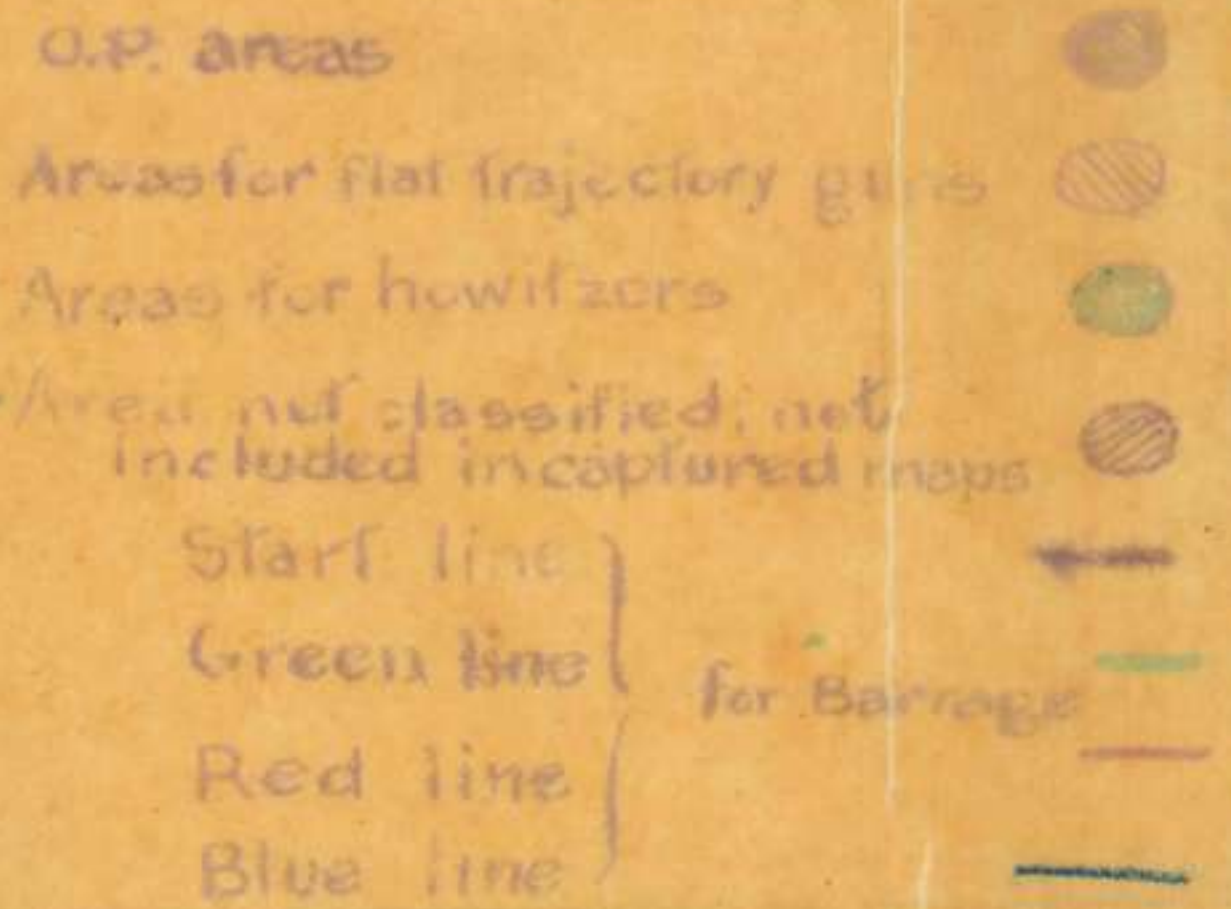 O.P. areas
Areas for flat trajectory guns
Areas for howitzers
Area not classified; not
included in captured maps
Start line
Green line
for Barrage
Red line
Blue line